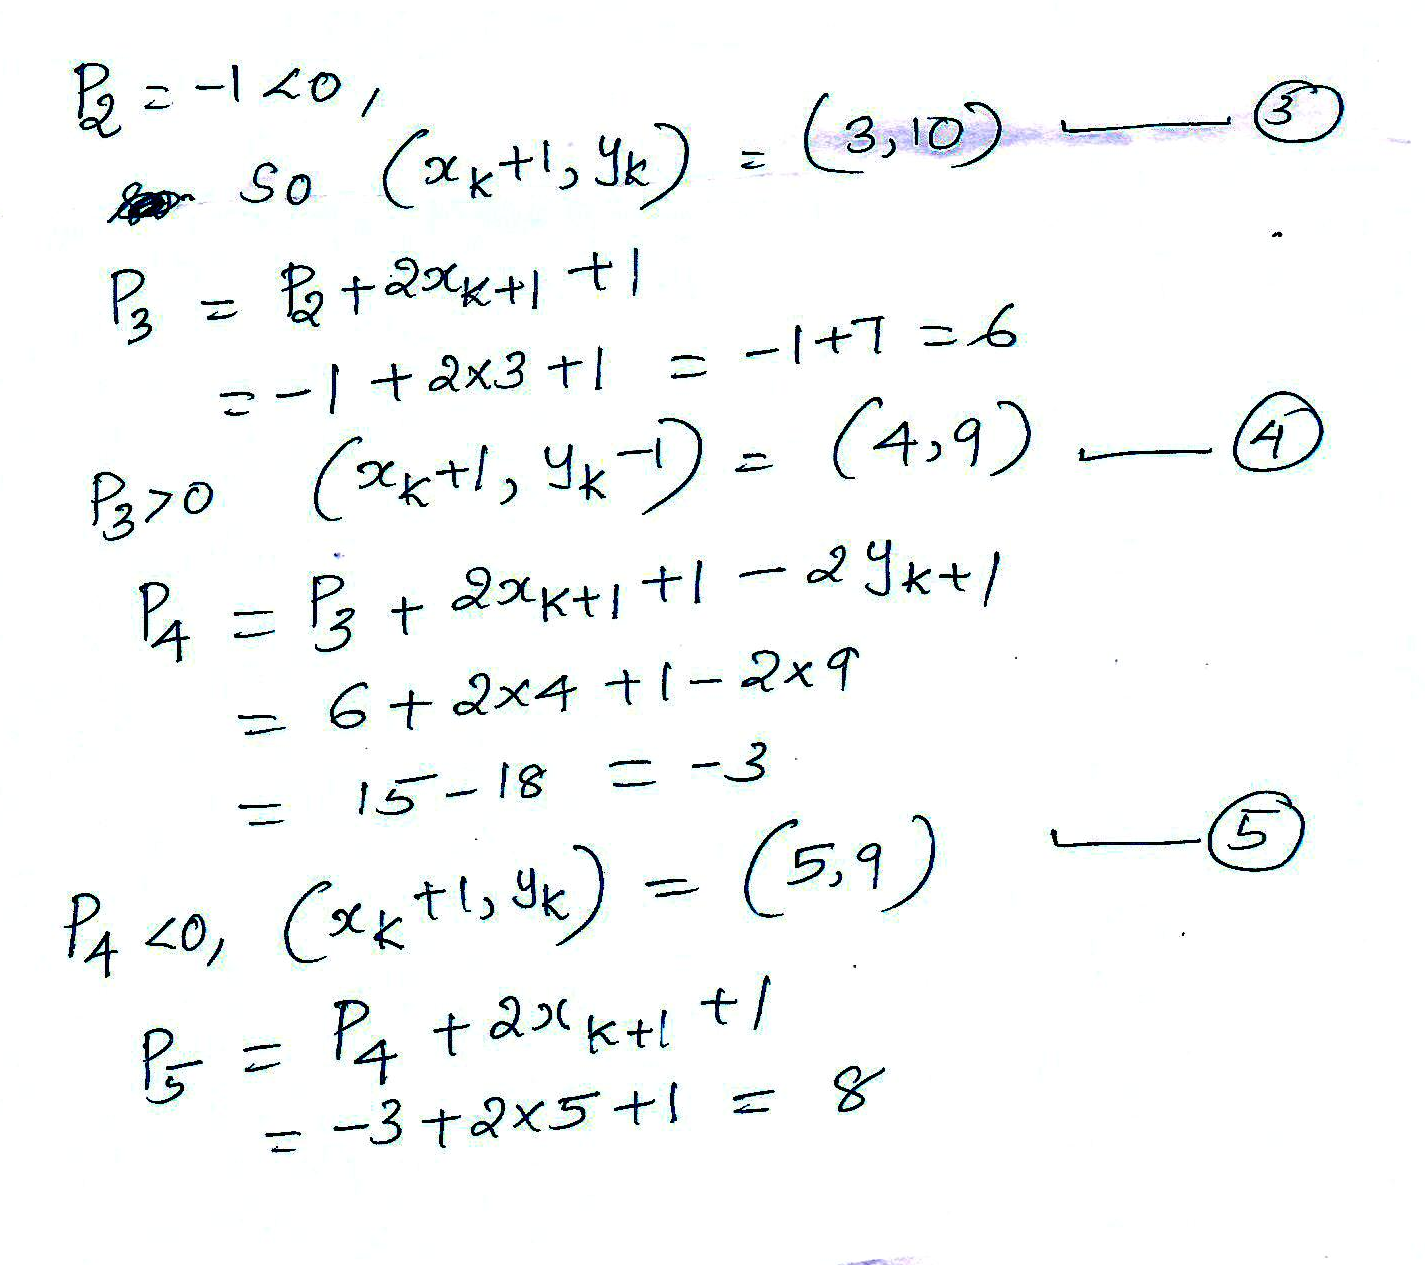 P₂ = -1 <0,
So (xₖ+1, yₖ) = (3,10) — ③
P₃ = P₂ + 2xₖ₊₁ + 1
= -1 + 2×3 +1 = -1+7 = 6
P₃>0 (xₖ+1, yₖ-1) = (4,9) — ④
P₄ = P₃ + 2xₖ₊₁ +1 - 2yₖ₊₁
= 6 + 2×4 +1 - 2×9
= 15 - 18 = -3
P₄ <0, (xₖ+1, yₖ) = (5,9) — ⑤
P₅ = P₄ + 2xₖ₊₁ +1
= -3 + 2×5 +1 = 8